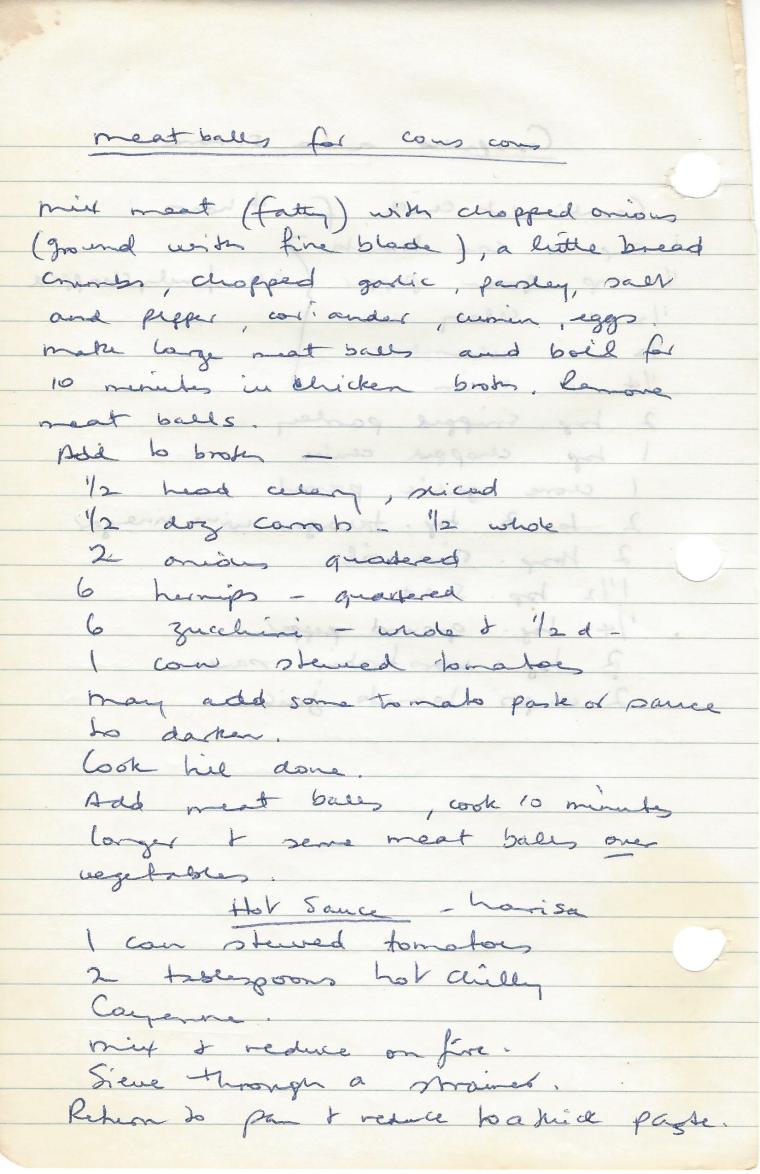 meat balls for cous cous
mix meat (fatty) with chopped onions
(ground with fine blade), a little bread
crumbs, chopped garlic, parsley, salt
and pepper, coriander, cumin, eggs.
make large meat balls and boil for
10 minutes in chicken broth. Remove
meat balls.
Add to broth —
1/2 head celery, sliced
1/2 doz carrots - 1/2 whole
2 onions quartered
6 turnips - quartered
6 zucchini - whole & 1/2 d -
1 can stewed tomatoes
may add some tomato paste or sauce
to darken.
Cook till done.
Add meat balls, cook 10 minutes
longer & serve meat balls over
vegetables.
Hot Sauce - harisa
1 can stewed tomatoes
2 tablespoons hot chilly
Cayenne.
mix & reduce on fire.
Sieve through a strainer.
Return to pan & reduce to a thick paste.